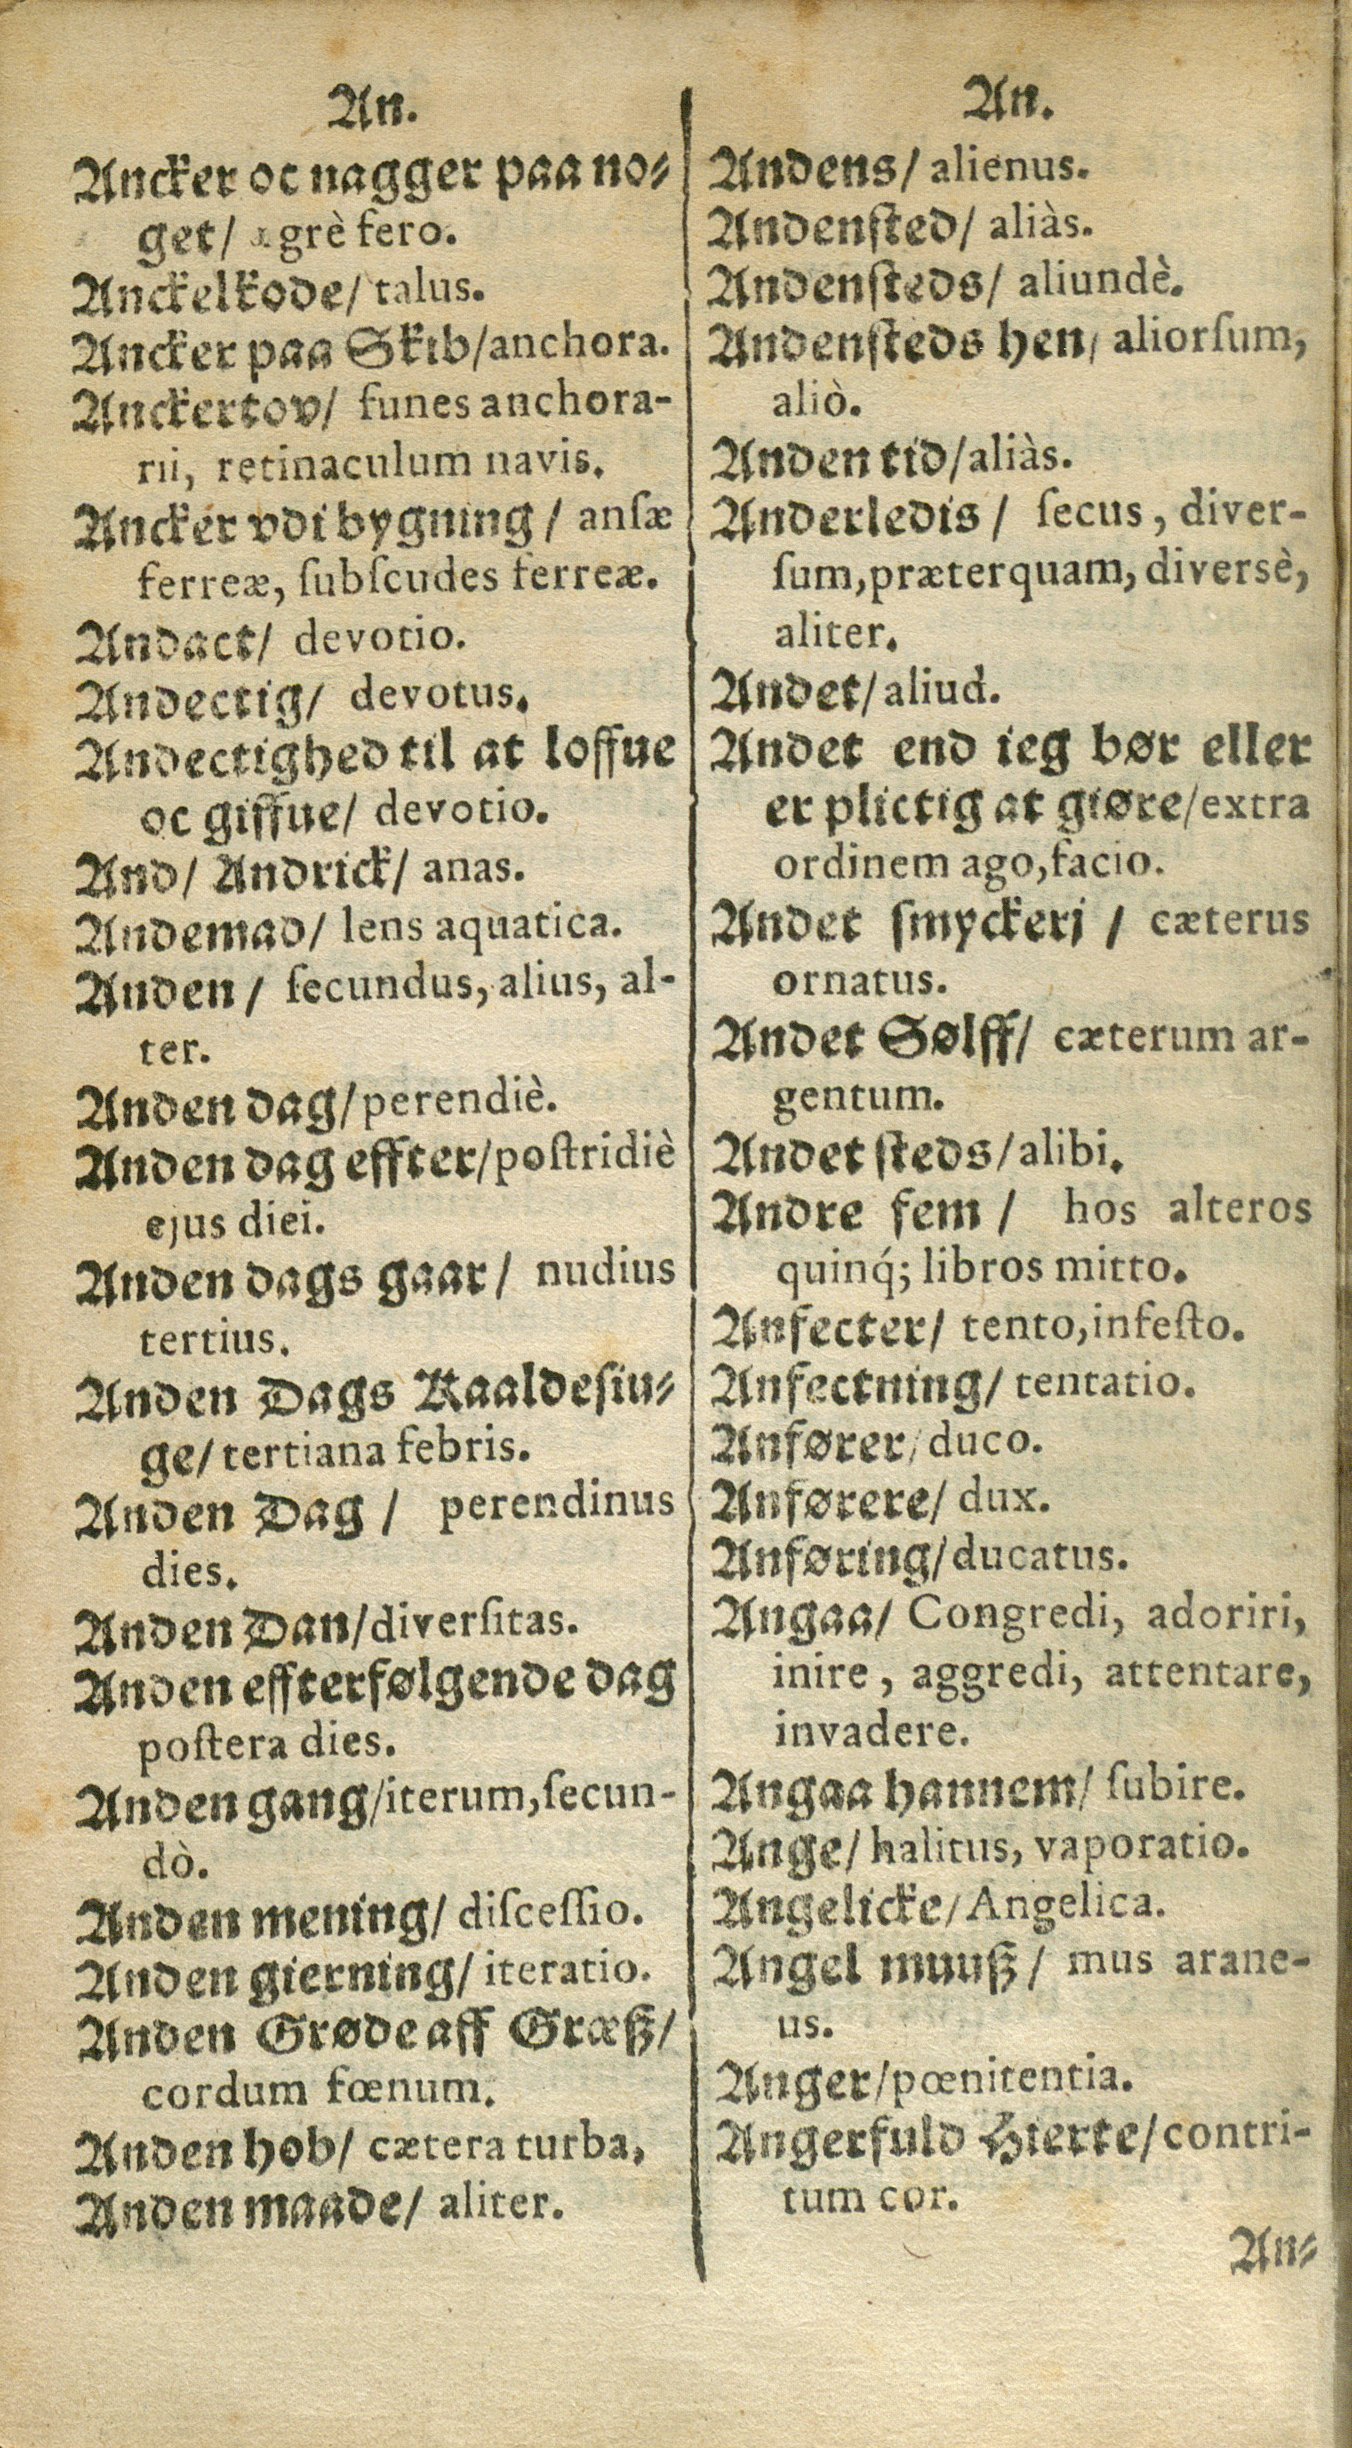 An.
Ancker oc nagger paa no⸗
get/ ægrè fero.
Anckelkode/ talus.
Ancker paa Skib/anchora.
Anckertov/ funes anchora-
rii, retinaculum navis.
Ancker vdi bygning / anſæ
ferreæ, ſubſcudes ferreæ.
Andact/ devotio.
Andectig/ devotus.
Andectighed til at loffue
oc giffue/ devotio.
And/ Andrick/ anas.
Andemad/ lens aquatica.
Anden / ſecundus, alius, al-
ter.
Anden dag/perendiè.
Anden dag effter/poſtridiè
ejus diei.
Anden dags gaar/ nudius
tertius.
Anden Dags Kaaldeſiu⸗
ge/ tertiana febris.
Anden Dag / perendinus
dies.
Anden Dan/diverſitas.
Anden effterfølgende dag
poſtera dies.
Anden gang/iterum,ſecun-
dò.
Anden mening/ diſceſſio.
Anden gierning/ iteratio.
Anden Grøde aff Græß/
cordum fœnum.
Anden hob/ cætera turba,
Anden maade/ aliter.
An.
Andens/ alienus.
Andenſted/ aliàs.
Andenſteds/ aliundè.
Andenſteds hen/ aliorſum,
aliò.
Anden tid/aliàs.
Anderledis / ſecus, diver-
ſum,præterquam, diversè,
aliter.
Andet/aliud.
Andet end ieg bør eller
er plictig at giøre/extra
ordinem ago,facio.
Andet ſmyckerj / cæterus
ornatus.
Andet Sølff/ cæterum ar-
gentum.
Andet ſteds/alibi.
Andre fem / hos alteros
quinq́; libros mitto.
Anfecter/ tento,infeſto.
Anfectning/ tentatio.
Anfører/duco.
Anførere/ dux.
Anføring/ducatus.
Angaa/ Congredi, adoriri,
inire, aggredi, attentare,
invadere.
Angaa hannem/ ſubire.
Ange/ halitus, vaporatio.
Angelicke/Angelica.
Angel muuß / mus arane-
us.
Anger/pœnitentia.
Angerfuld Hierte/contri-
tum cor.
An⸗